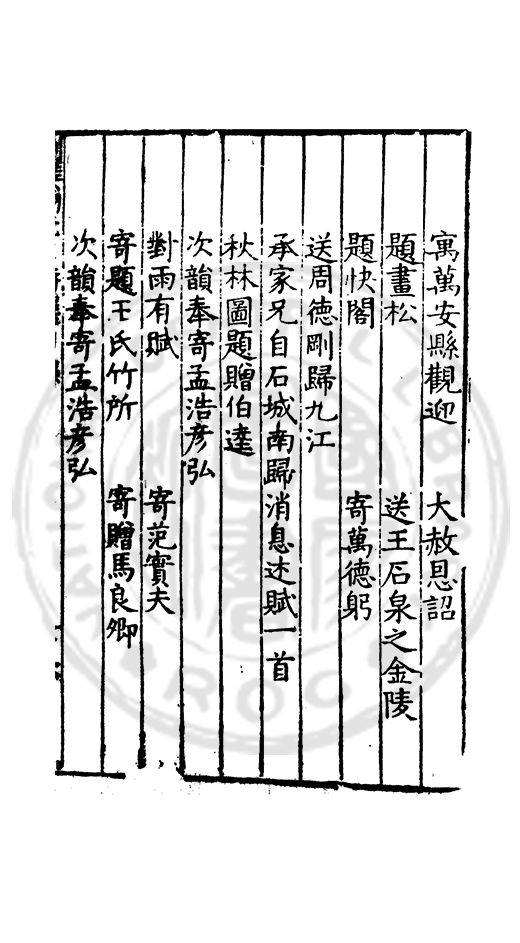 寓萬安縣觀迎　大赦恩詔
題畫松　送王石泉之金陵
題快閣　寄萬德躬
送周德剛歸九江
承家兄自石城南歸消息述賦一首
秋林圖題贈伯達
次韻奉寄孟浩彥弘
對雨有賦　寄范實夫
寄題王氏竹所　寄贈馬良卿
次韻奉寄孟浩彥弘